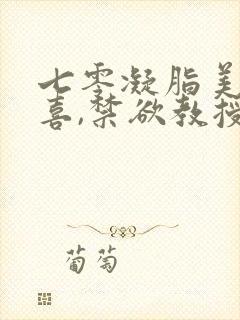 七零凝脂美
喜,禁欲教授
葡萄